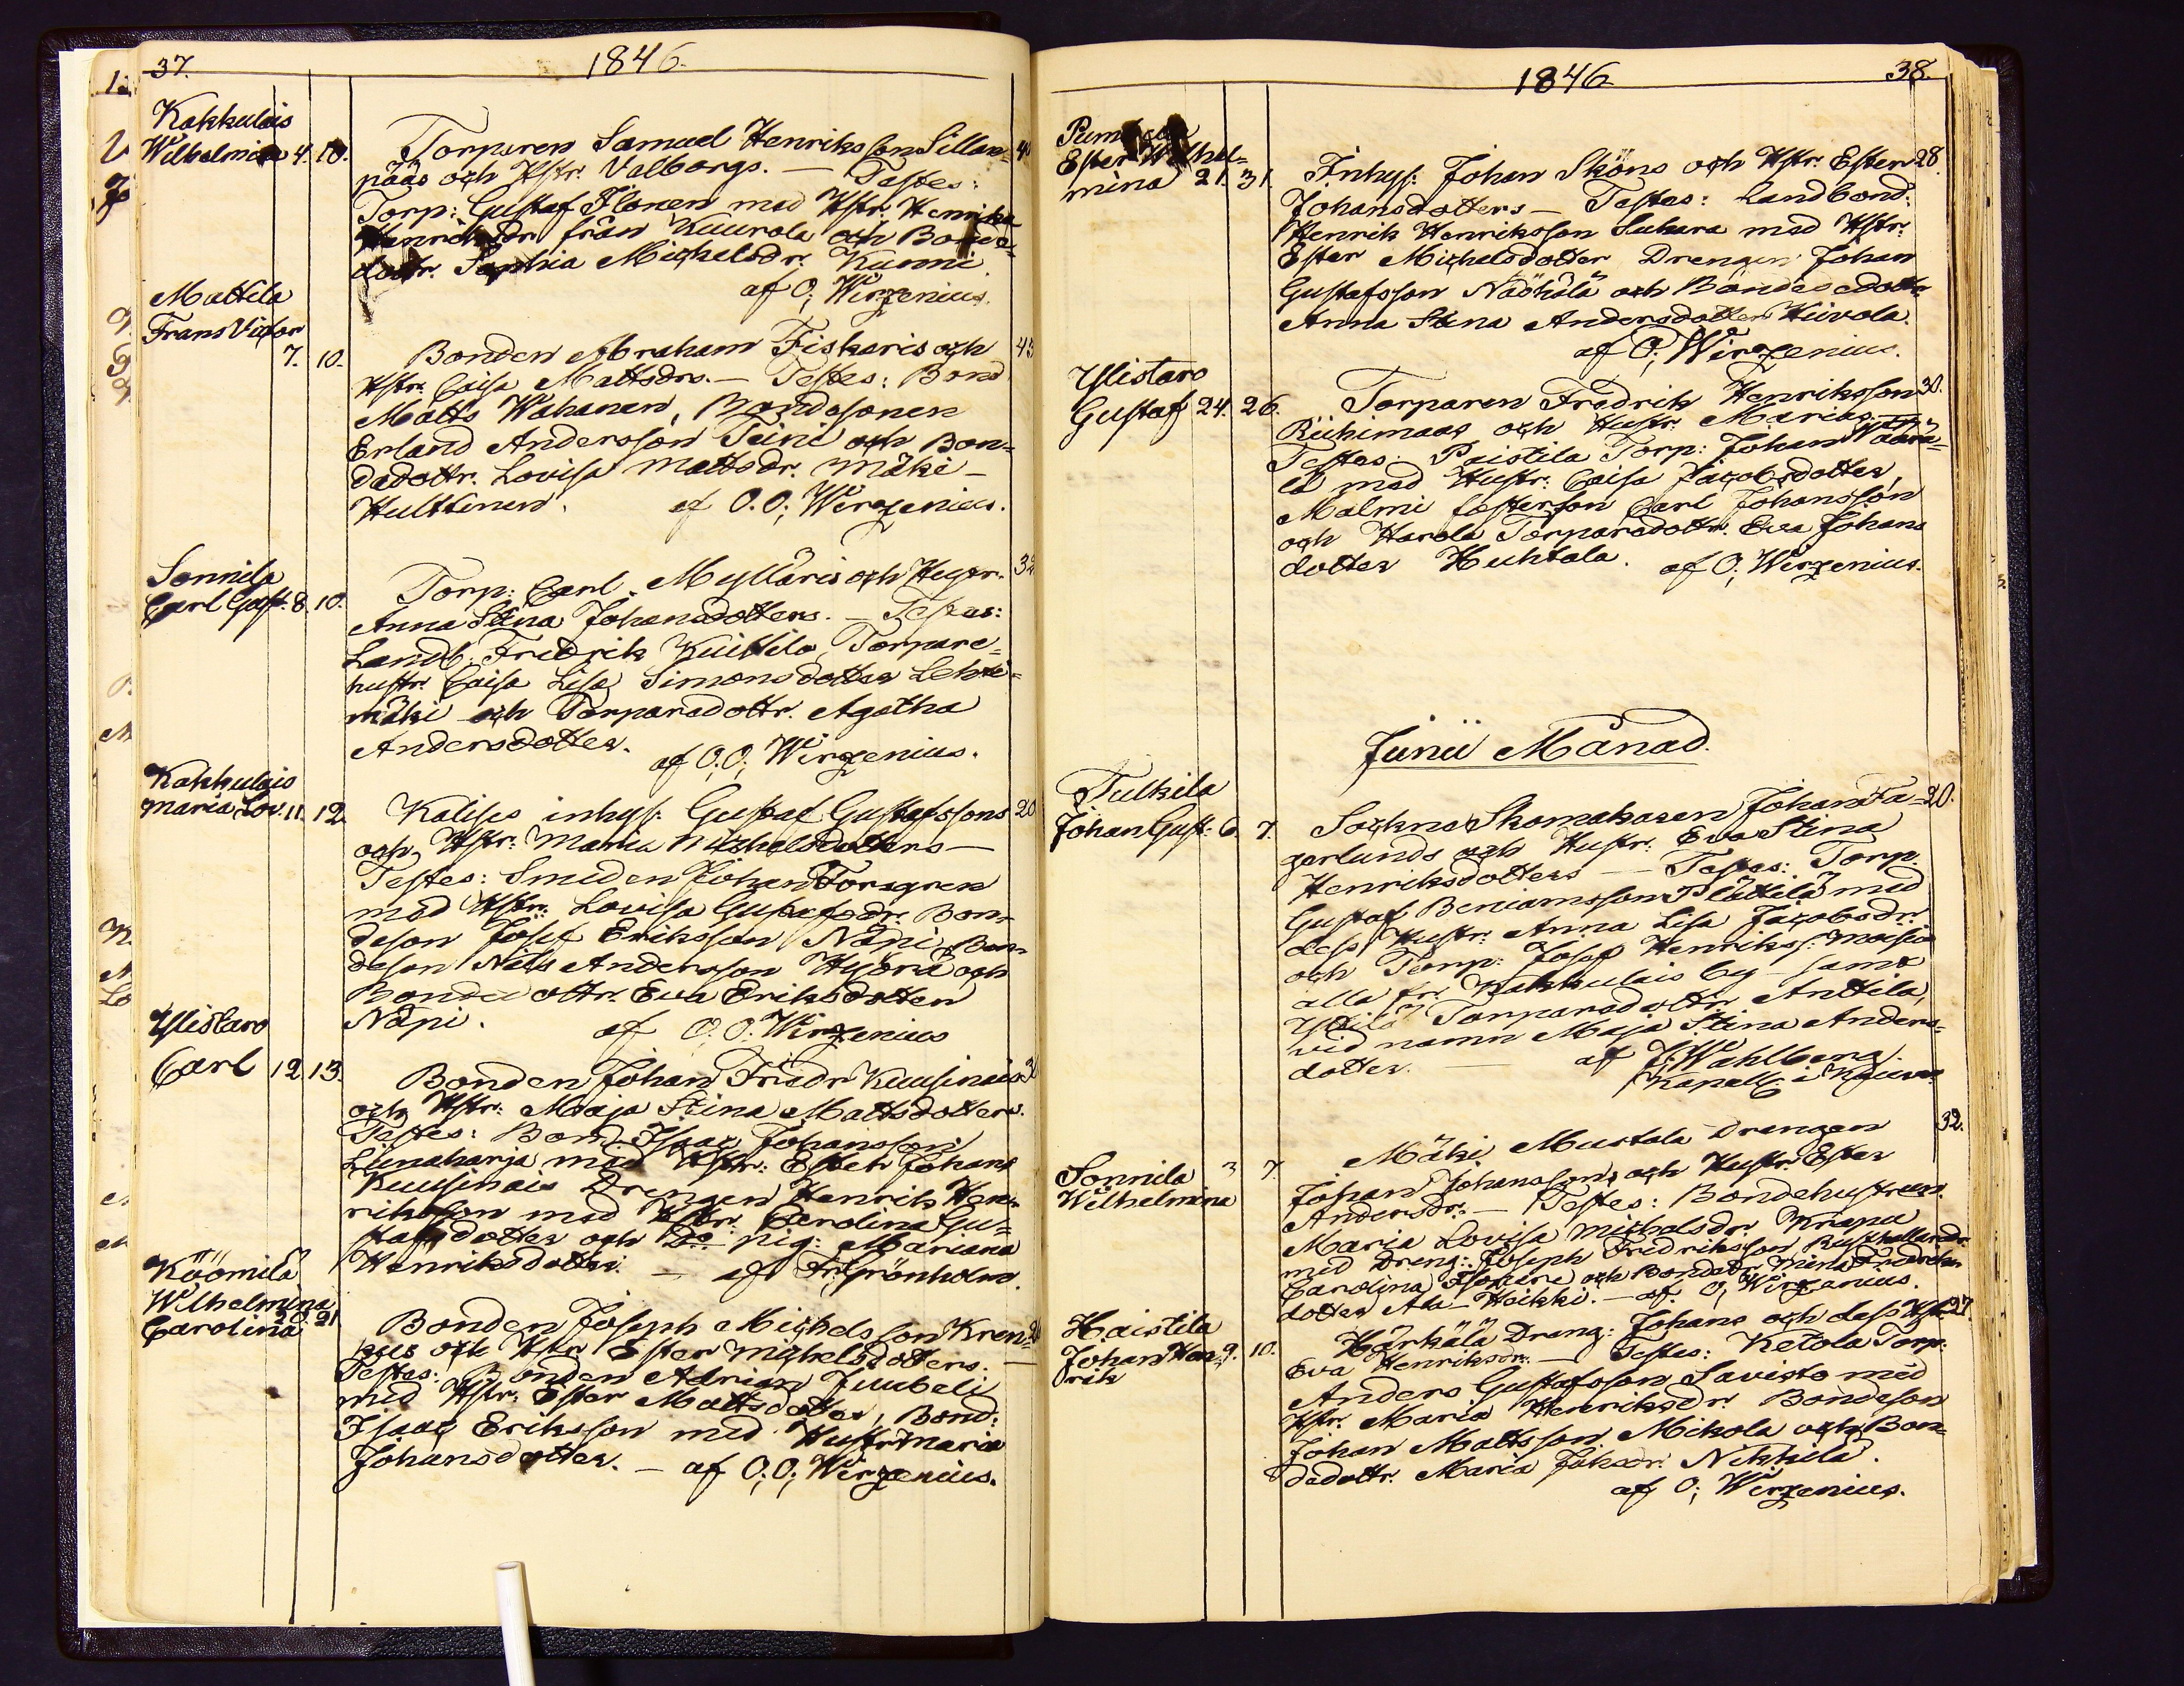 37.
1846.
Kakkulais
Wilhelmina 4. 10. Torparen Samuel Henriksson Sillan= 40
pääs och Hstr. Valborgs. — Testes:
Torp: Gustaf Flonen med Hstr. Henrika
Henriksdr från Kuurola och Bonde=
dottr. Sophia Michelsdr. Kunni
af O; Wirzenius.
Mattila
Frans Victor
7. 10. Bonden Abraham Fiskaris och 43
Hstr. Caisa Mattsdrs. — Testes: Bond
Matts Wahanen, Bondesonen
Erland Andersson Teini och Bon=
dedottr. Lovisa Mattsdr. Mäki —
Hulttinen. af O. O; Wirzenius.
Sonnila
Carl Gust. 8. 10. Torp: Carl Mylläris och Hustr. 32
Anna Stina Johansdotters. — Testes:
Landb. Fredrik Kuittila, Torpare=
hustr. Caisa Lisa Simonsdotter Lehti=
mäki och Torparedottr. Agatha
Andersdotter.
af O; O; Wirzenius.
Kakkulais
Maria Lov. 11. 12. Kalises inhys: Gustaf Gustafssons 20
och Hstr: Maria Michelsdotters —
Testes: Smeden Johan Forsgren
med Hstr: Lovisa Gustafsdr. Bon=
deson Josef Eriksson Näpi, Bon
deson Nils Andersson Hyörä och
Bondedottr. Eva Eriksdotter
Näpi. af O. O. Wirzenius
Ylistaro
Carl 12. 13. Bonden Johan Fredr Kuusinais 30
och Hstr: Maja Stina Mattsdotters.
Testes: Bond. Isaac Johansson
Liinaharja med Hstr: Ester Johans
Kuusinais Drengen Henrik Hen=
riksson med Hstr. Carolina Gu=
stafsdotter och Do pig: Mariana
Henriksdotter. — af Fr. Grönholm.
Köömilä
Wilhelmina
Carolina 20. 21. Bonden Joseph Michelsson Kren= 20
pus och Hstr Ester Michelsdotters. —
Testes: Bonden Adrian Juubeli
med Hstr: Ester Mattsdotter, Bond:
Isaac Eriksson med Hustr Maria
Johansdotter. — af O; O; Wirzenius.
1846
38.
Ester Wilhel=
mina 21. 31. Inhys: Johan Sköns och Hstr: Ester 28.
Johansdotters — Testes: Landbond:
Henrik Henriksson Suhara med Hstr:
Ester Michelsdotter Drengen Johan
Gustafsson Näöhälä och Bondesdotte
Anna Stina Andersdotter Kiivola.
af O; Wirzenius.
Ylistaro
Gustaf 24. 26. Torparen Fredrik Henriksson 30.
Riihimaas och Hustr. Marias —
Testes: Peistila Torp: Johan Waara=
la med Hustr: Caisa Jacobsdotter,
Malmi fosterson Carl Johansson
och Harola Torparedottr. Eva Johans
dotter Huhtala. af O; Wirzenius.
Junii Månad.
Tulkila
Johan Gust: 6. 7. Sockne Skomakaren Johan Fa= 20.
gerlunds och Hustr: Eva Stina
Henriksdotters — Testes: Torp.
Gustaf Beniamsson Plättilä med
dess Hustr: Anna Lisa Jacobsdr.
och Torp: Josef Henrikss: Moisio
alla fr. Kakkulais by — samt
Torparedottr Anttila,
vid namn Maja Stina Anders=
dotter. — af Wahlberg.
Kapell: i
Sonnila
Wilhelmina 3 7. Mäki Mustala Drengen 32.
Johan Johanssons och Hustr. Ester
Andersdr: — Testes: Bondehustrun
Maria Lovisa Michelsdr Krapu
med Dreng: Joseph Fridriksson Rusthollaredr.
Carolina och Bondedr Mina Fredriks
dotter Ala-Heikki. — af O; Wirzenius.
Haistila
Johan Hen= 9. 10. Härkälä Dreng: Johans och dess Hstr. 27.
rik
Eva Henriksdr. — Testes: Ketola Torp:
Anders Gustafsson Savisto med
Hstr. Maria Henriksdr. Bondeson
Johan Mattsson Mikola och Bon=
dedottr. Maria Johsdr. Nikkilä.
af O; Wirzenius.